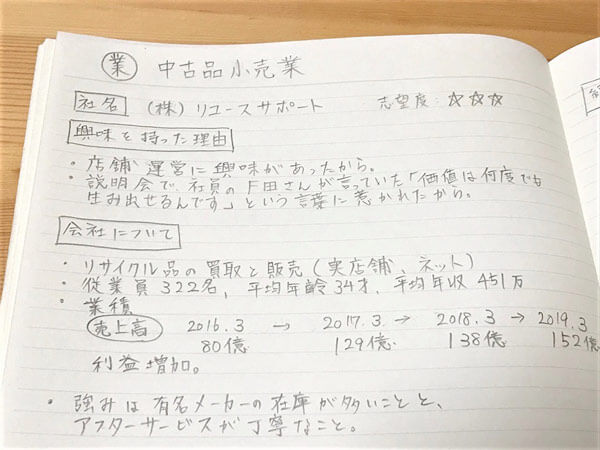 業 中古品小売業
社名 (株)リユースサポート 志望度:☆☆☆
興味を持った理由
・店舗運営に興味があったから。
・説明会で、社員の下田さんが言っていた「価値は何度でも
生み出せるんです」という言葉に惹かれたから。
会社について
・リサイクル品の買取と販売(実店舗、ネット)
・従業員322名、平均年齢34才、平均年収451万
・業積
売上高 2016.3 → 2017.3 → 2018.3 → 2019.3
80億 129億 138億 152億
利益増加。
・強みは有名メーカーの在庫が多いことと、
アフターサービスが丁寧なこと。